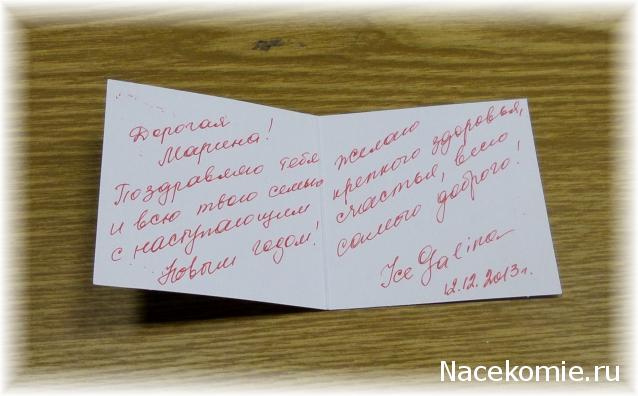 Дорогая
Марина!
Поздравляю тебя
и всю твою семью
с наступающим
Новым годом!
желаю
крепкого здоровья,
счастья, всего
самого доброго!
Ice Galina
12.12.2013г.
Nacekomie.ru